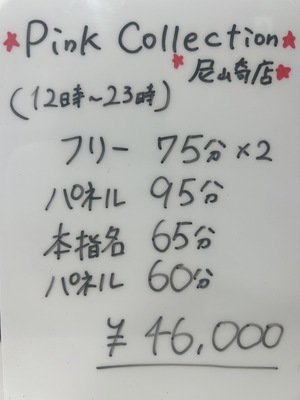 Pink Collection
尼崎店
(12時~23時)
フリー 75分×2
パネル 95分
本指名 65分
パネル 60分
¥46,000